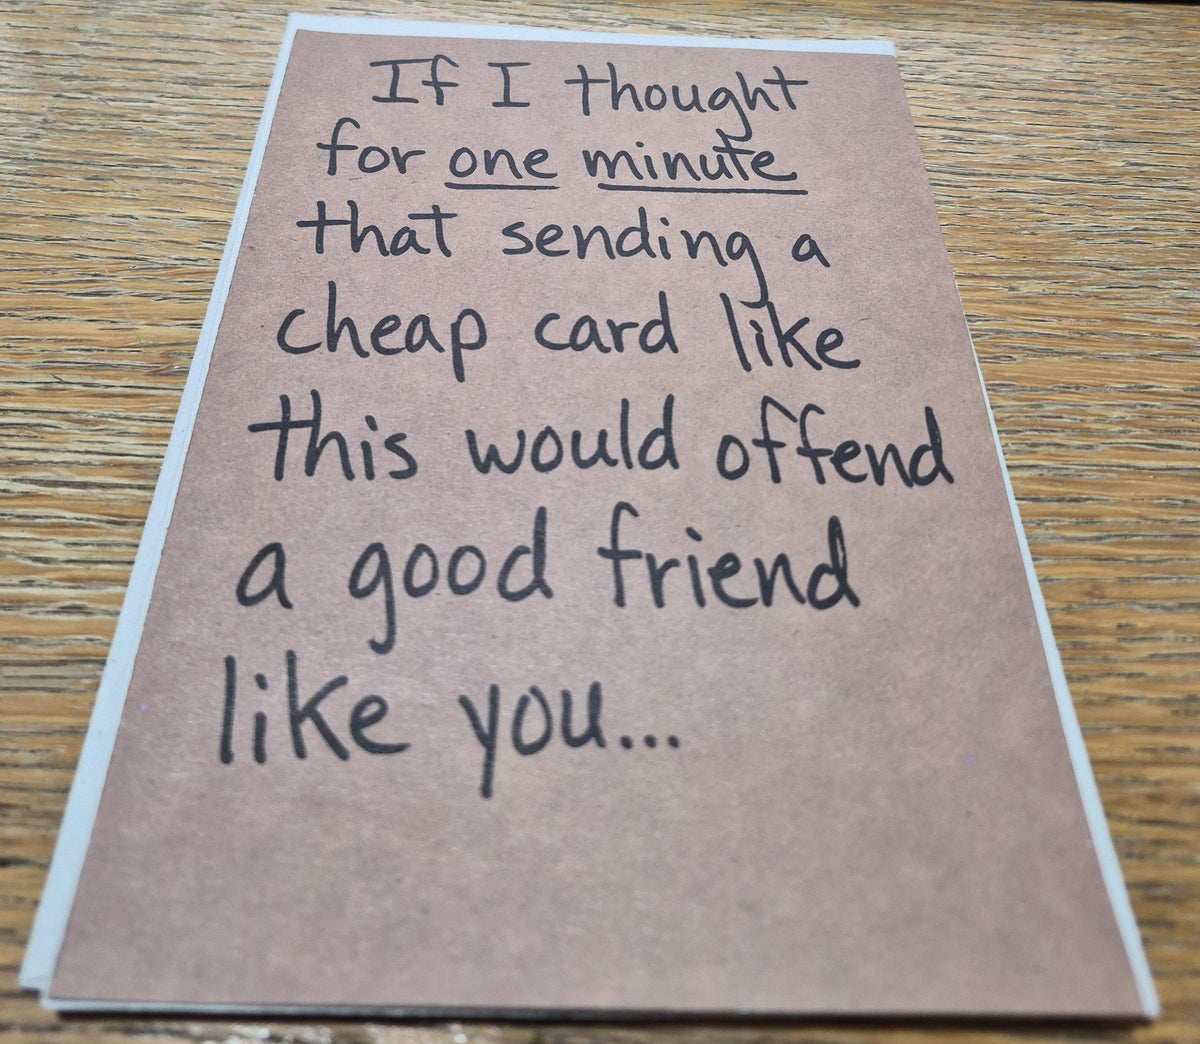 If I thought
for one minute
that sending a
cheap card like
this would offend
a good friend
like you...